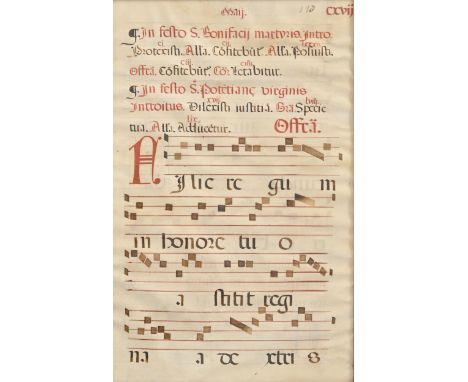 Maij. 190 cxvij
¶ In festo S. Bonifacij martyris. Intro.
Protexisti. Alla. Cõfitebũt. Alla. Posuisti.
Offrã. Cõfitebũt. Cõr. Letabitur.
¶ In festo S. Potẽtianę virginis
Introitus. Dilexisti iustitiã. Gra. Specie
tua. Alla. Adducetur. Offrã.
Filie regum
in honore tuo
astitit regi
na a dextris